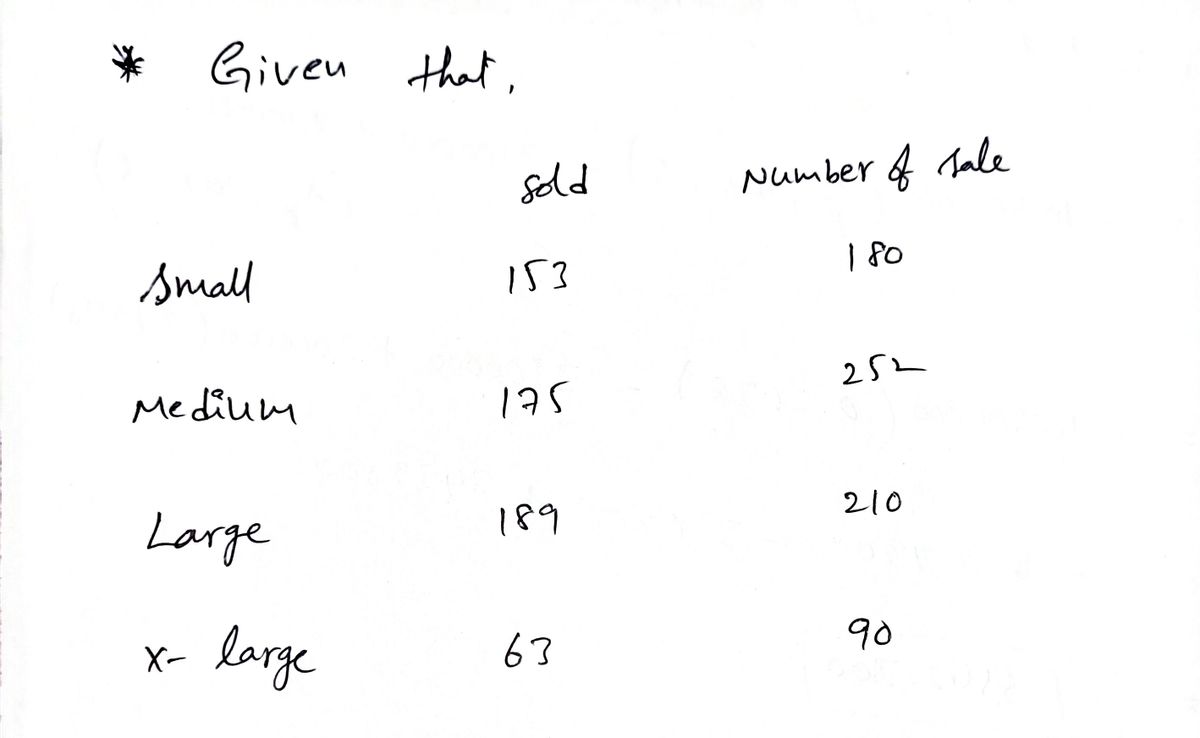 * Given that,
sold Number of sale
Small 153 180
Medium 175 252
Large 189 210
X- large 63 90